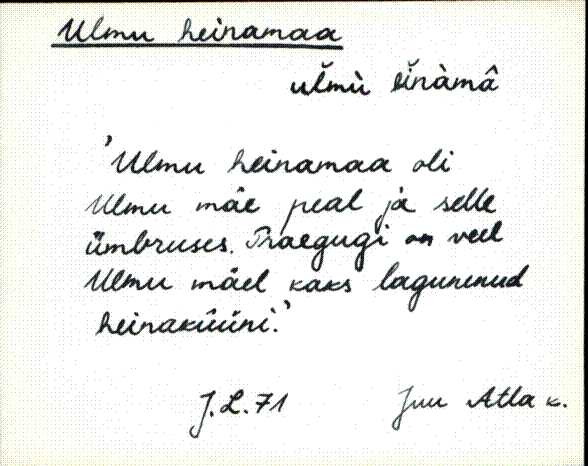 Ulmu heinamaa
ul̆mù ĕĭnàmâ
'Ulmu heinamaa oli
Ulmu mäe peal ja selle
ümbruses. Praegugi on veel
Ulmu mäel kaks lagunenud
heinaküüni.'
J.L.71 Juu Atla k.